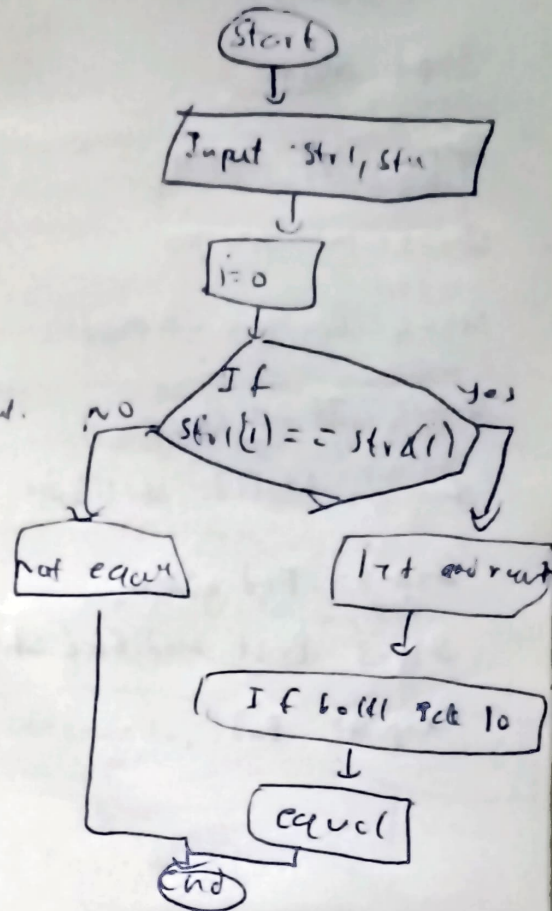 Start
Input str1, str2
i=0
If
str1(i) == str2(i)
no
yes
not equal
i++ and
If both \0
equal
End